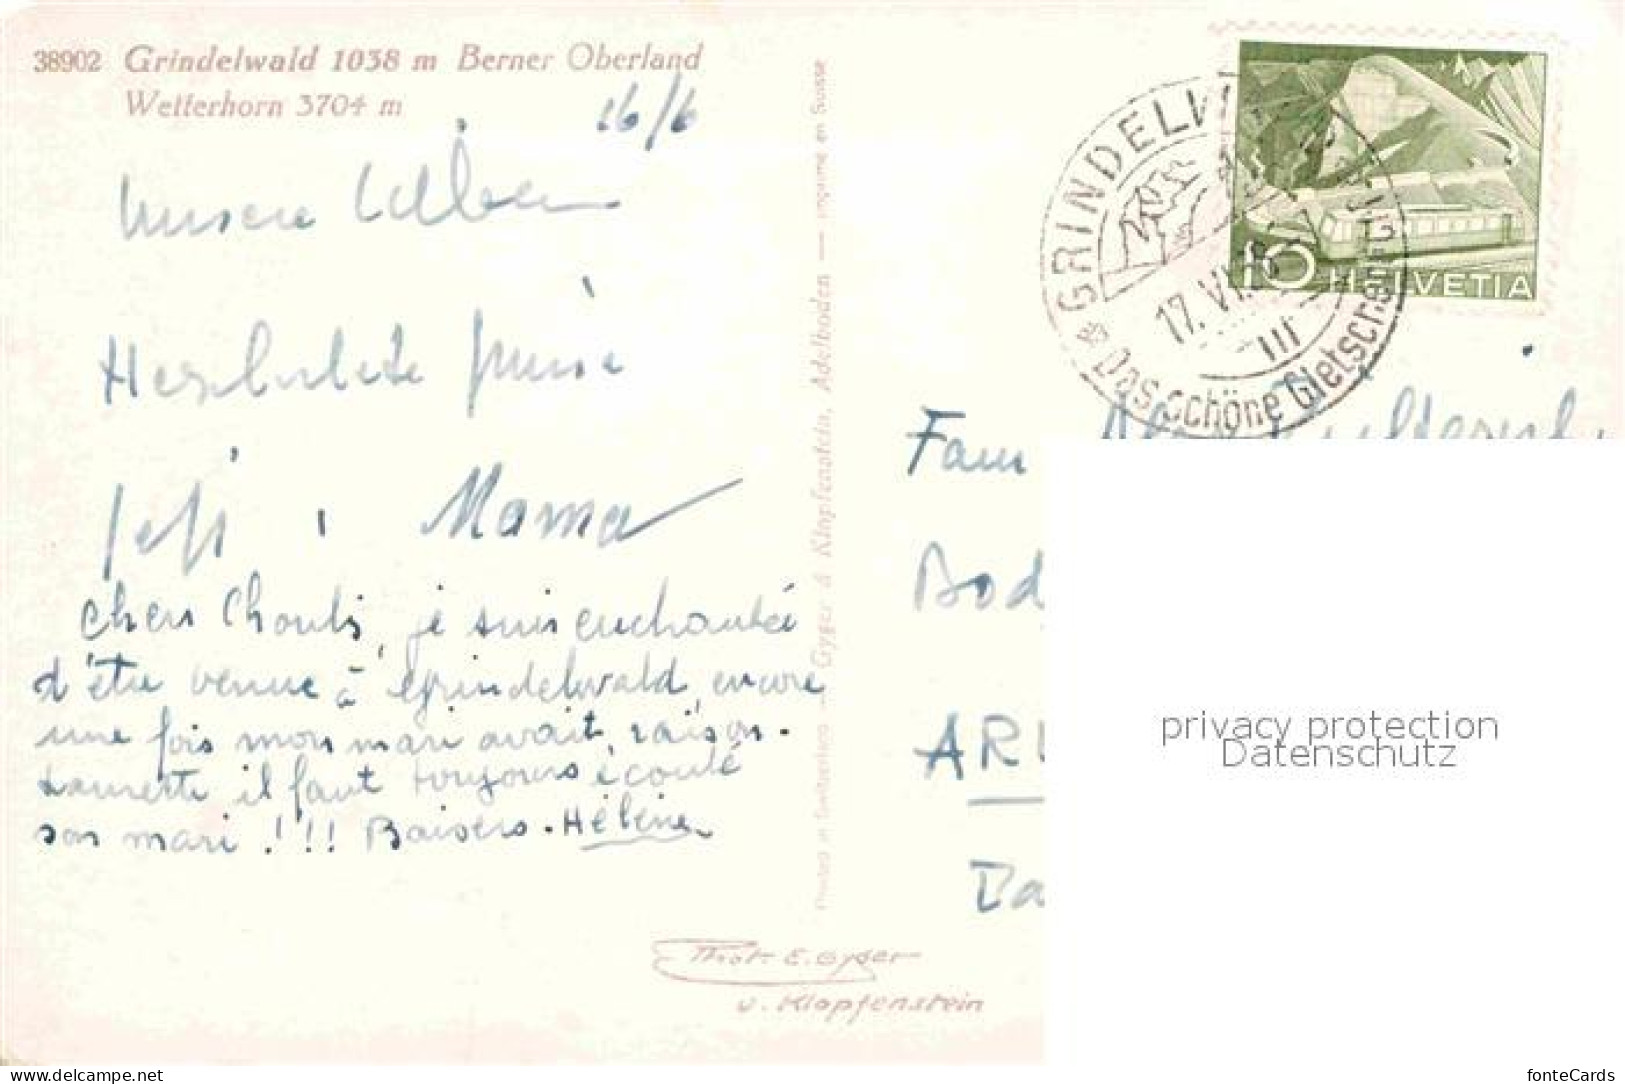 38902 Grindelwald 1038 m Berner Oberland
Wetterhorn 3704 m
16/6
Unsere Lieben
Herzlichste
Mama
chers Choulis, je suis enchantée
d'être venue à Grindelwald, encore
une fois mon mari avait raison.
il faut toujours écouté
son mari !!! Baisers. Hélène
Printed in Switzerland — Gyger & Klopfenstein, Adelboden — Imprimé en Suisse
Phot. E. Gyger
u. Klopfenstein
GRINDELW
17. VI.
III
Das schöne Gletscher
10 HELVETIA
Fam
Bod
AR
privacy protection
Datenschutz
www.delcampe.net
fonteCards